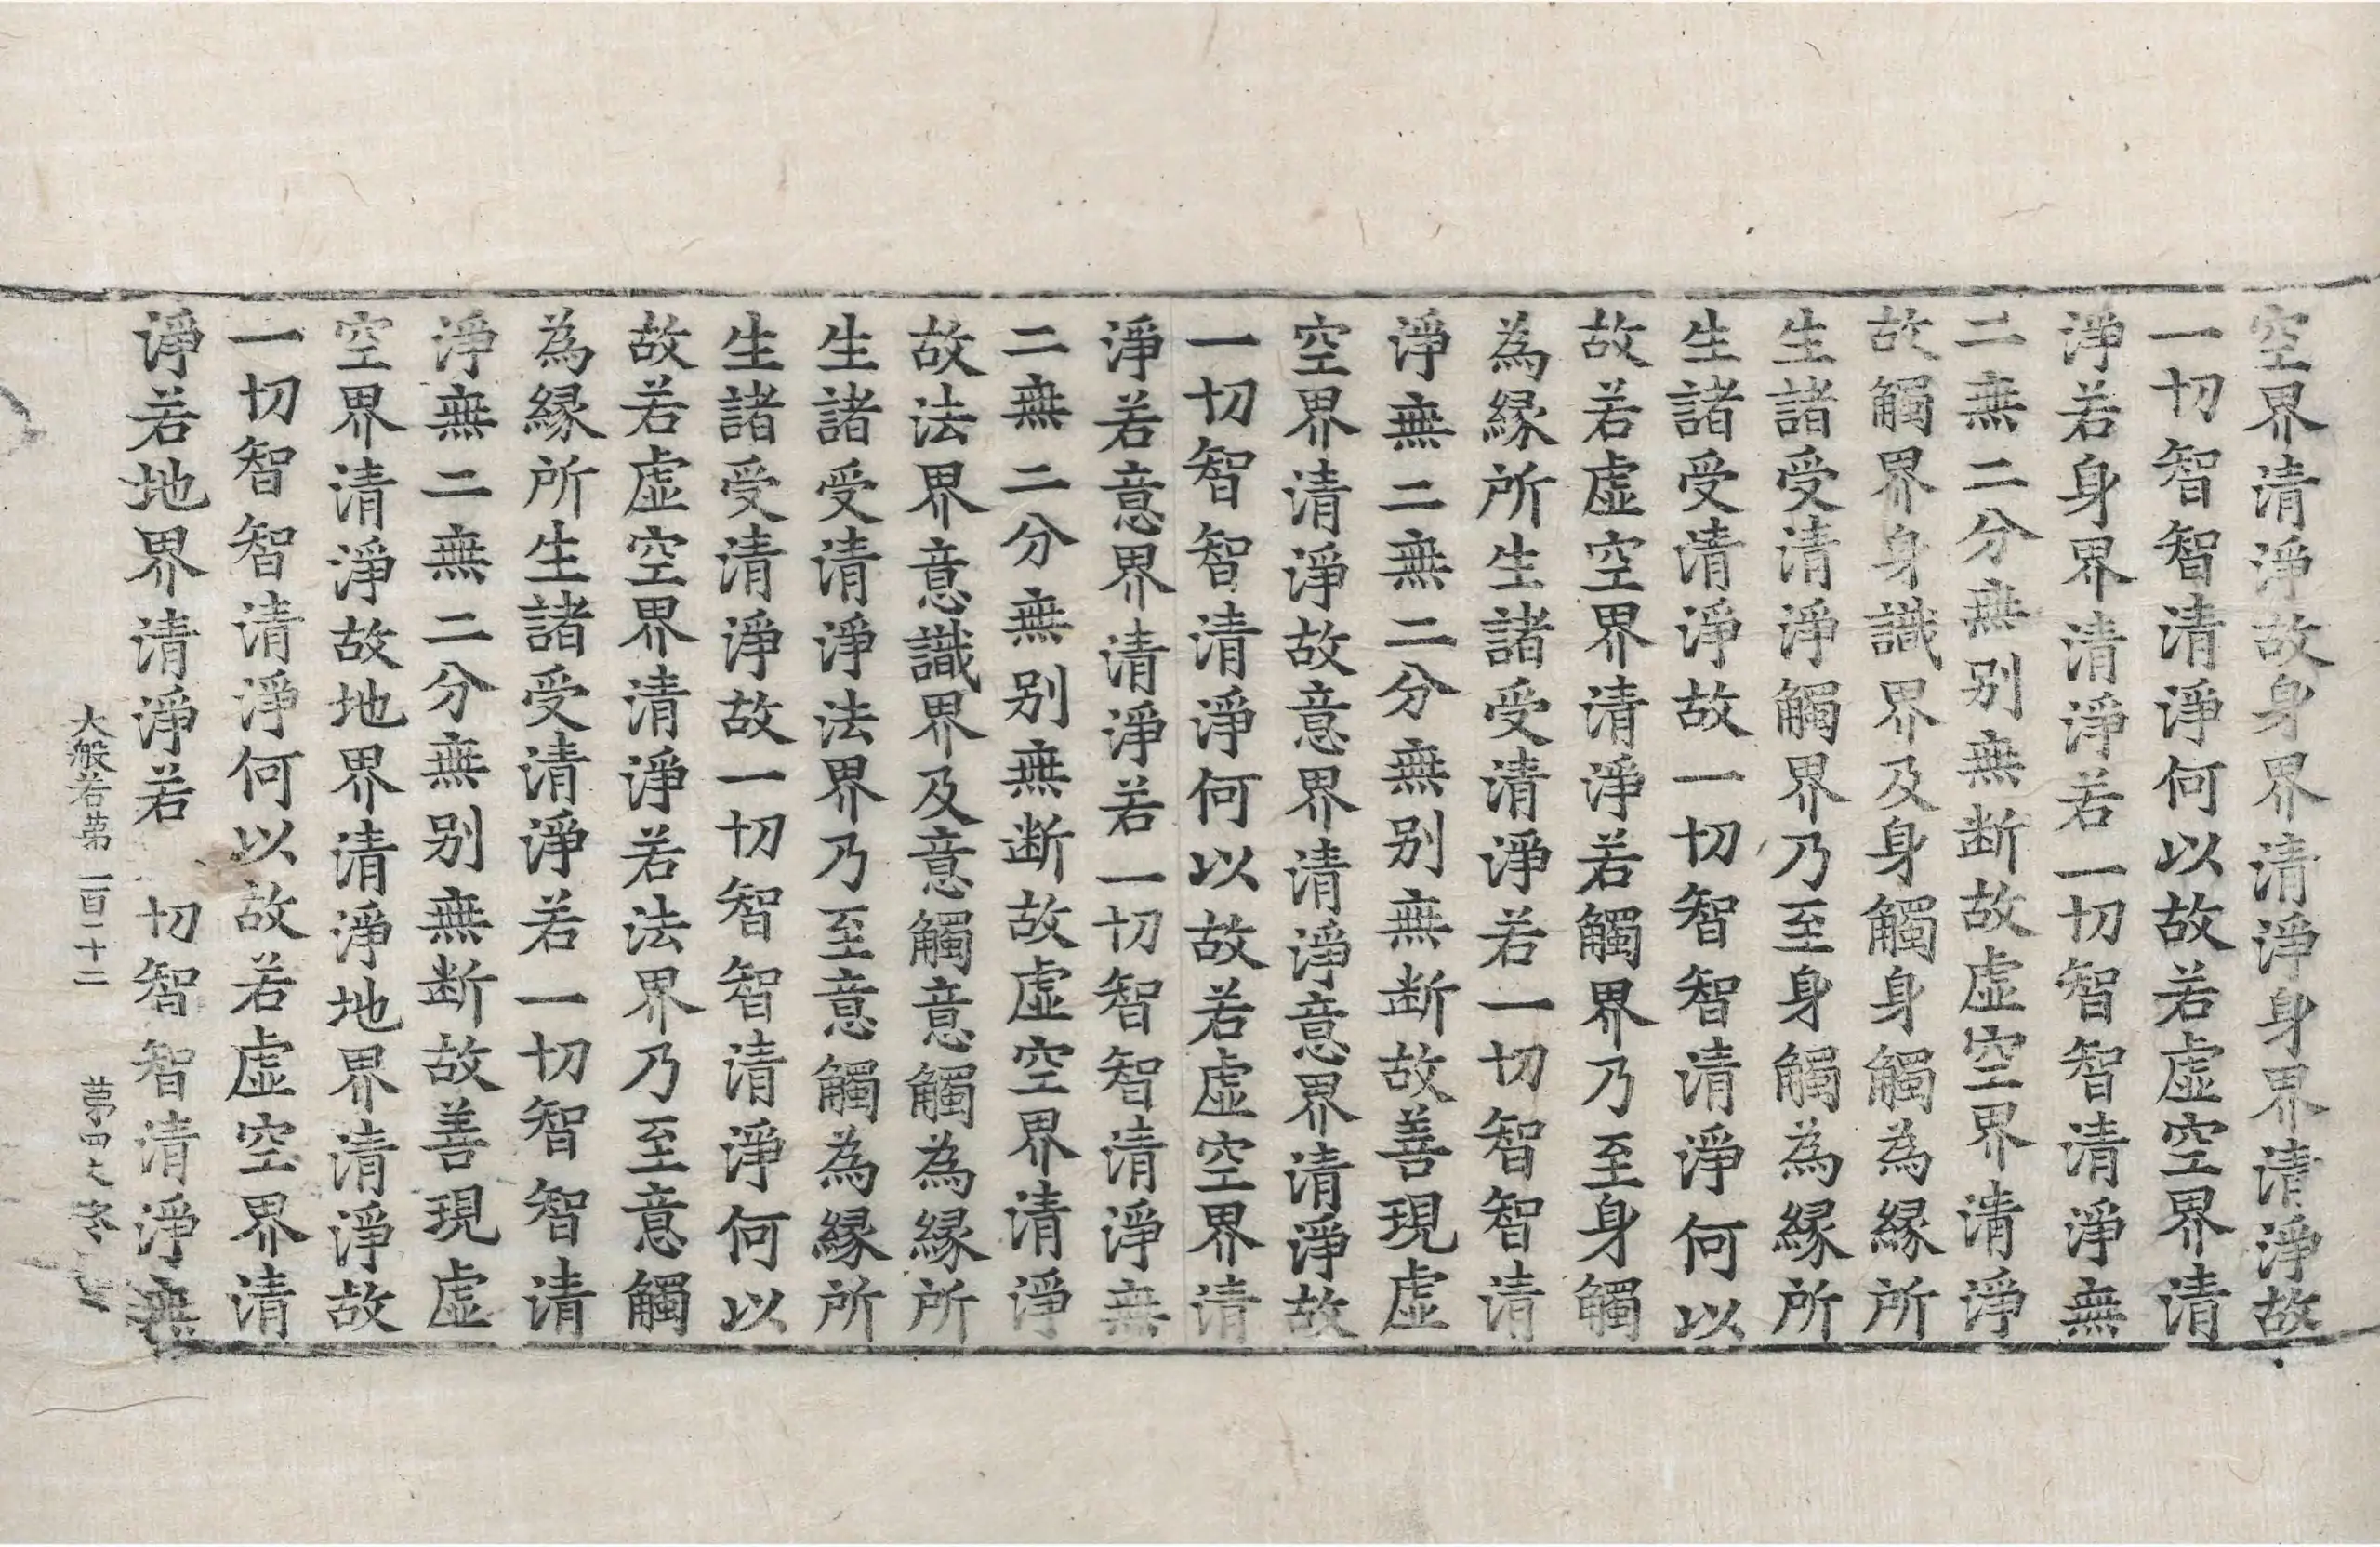 空界清淨故身界清淨身界清淨故
一切智智清淨何以故若虚空界清
淨若身界清淨若一切智智清淨無
二無二分無别無断故虚空界清淨
故觸界身識界及身觸身觸為縁所
生諸受清淨觸界乃至身觸為縁所
生諸受清淨故一切智智清淨何以
故若虚空界清淨若觸界乃至身觸
為縁所生諸受清淨若一切智智清
淨無二無二分無别無断故善現虚
空界清淨故意界清淨意界清淨故
一切智智清淨何以故若虚空界清
淨若意界清淨若一切智智清淨無
二無二分無别無断故虚空界清淨
故法界意識界及意觸意觸為縁所
生諸受清淨法界乃至意觸為縁所
生諸受清淨故一切智智清淨何以
故若虚空界清淨若法界乃至意觸
為縁所生諸受清淨若一切智智清
淨無二無二分無别無断故善現虚
空界清淨故地界清淨地界清淨故
一切智智清淨何以故若虚空界清
淨若地界清淨若 切智智清淨無
大般若第一百二十二 第四丈